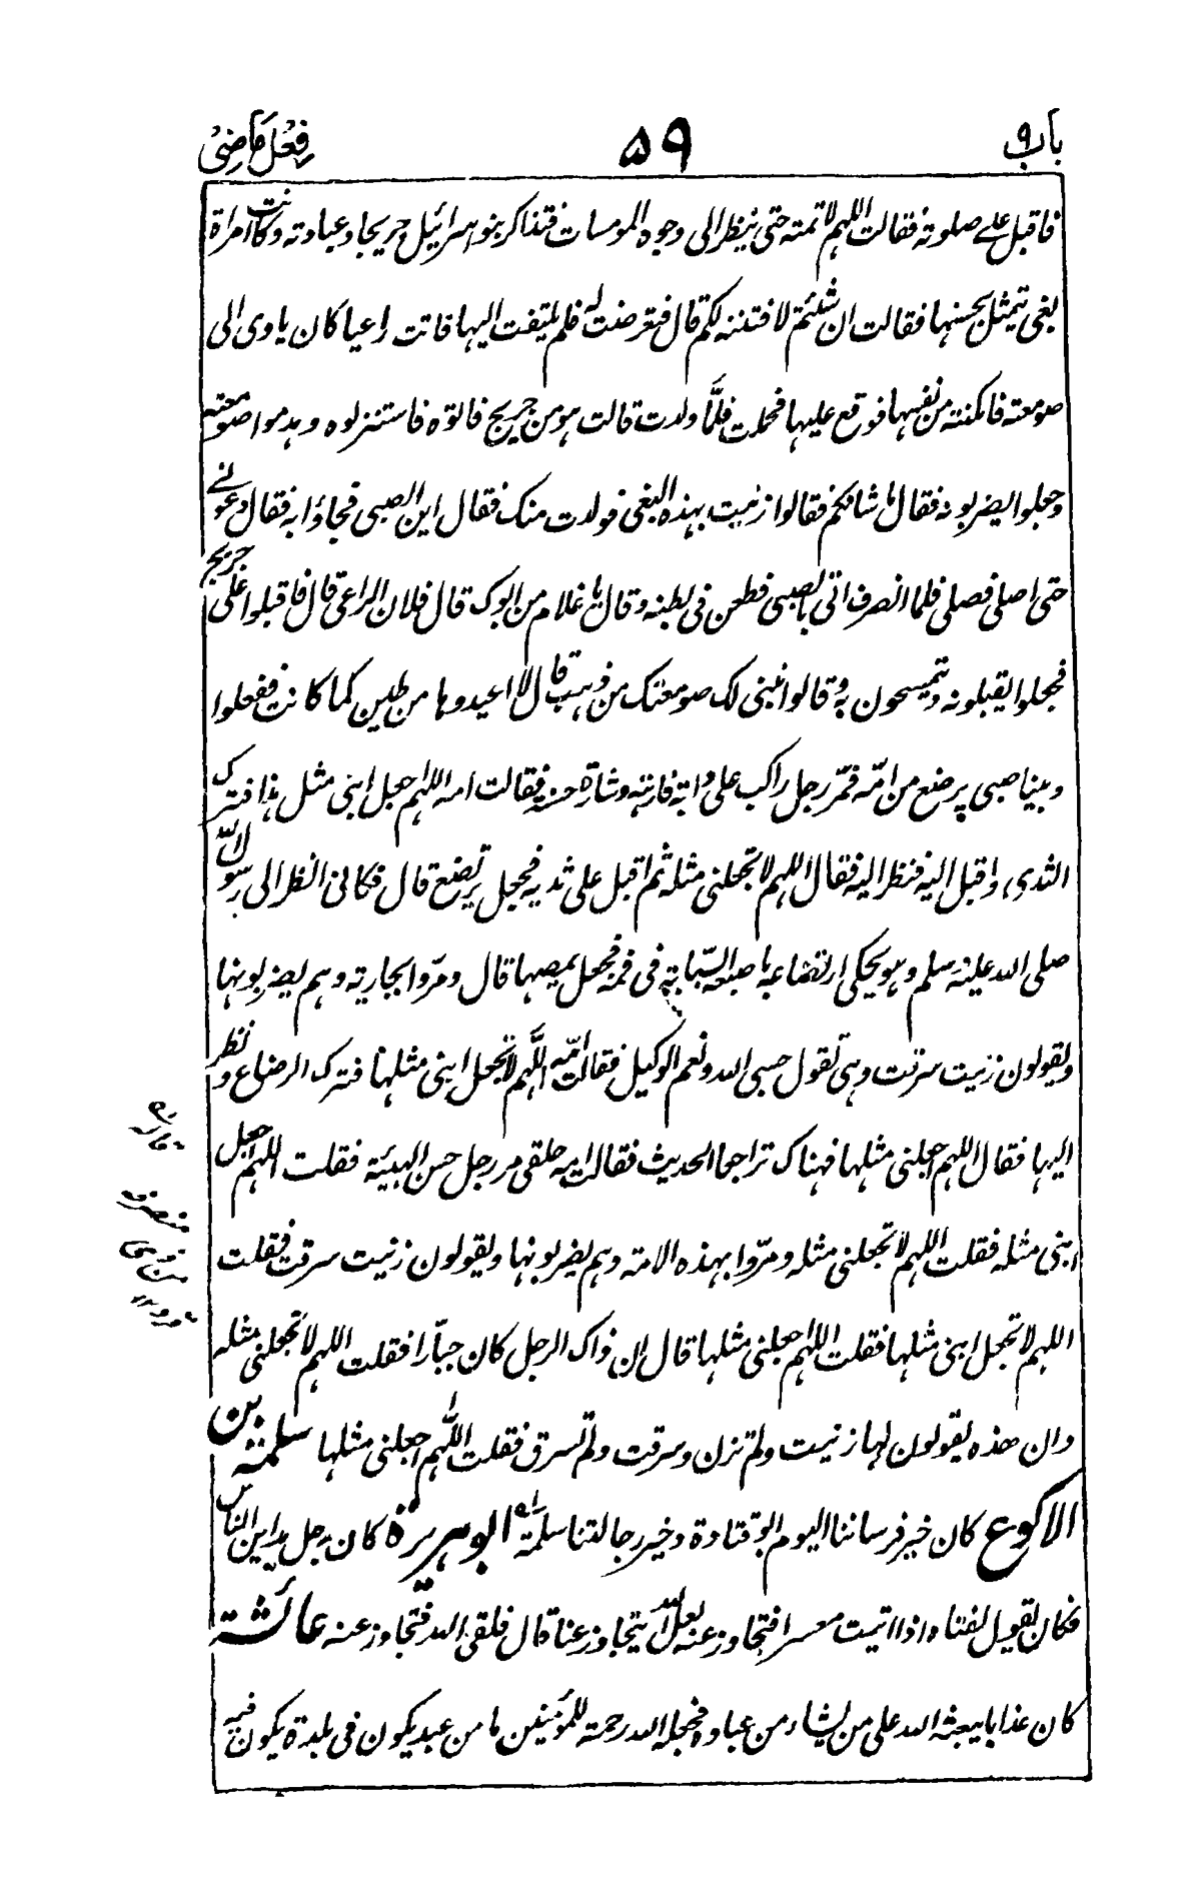 باب ٩
٥٩
فِعْل مَاضِىْ
فاقبل علے صلوته فقالت اللهم لا تمته حتى ينظر الى وجوه المومسات فتذاكر بنو اسرائيل جريجا وعبادته وكانت امراة
بغى يتمثل بحسنها فقالت ان شئتم لافتننه لكم قال فتعرضت له فلم يلتفت اليها فاتت راعيا كان ياوى الى
صومعته فامكنته من نفسها فوقع عليها فحملت فلمَّا ولدت قالت هو من جريج فاتوه فاستنزلوه وهدموا صومعته
وجعلوا يضربونه فقال ما شانكم فقالوا زنيت بهذه البغى فولدت منك فقال اين الصبى فجاؤا به فقال دعونے
حتى اصلى فصلى فلما انصرف اتى بالصبى فطعن فى بطنه وقال يا غلام من ابوك قال فلان الراعى قال فاقبلوا على جريج
فجعلوا يقبلونه ويتمسحون به وقالوا نبنى لك صومعتك من ذهب قال لا اعيدوها من طين كما كانت ففعلوا
وبينا صبى يرضع من امّه فمّر رجل راكب على دابة فارهة وشارة حسنة فقالت امه اللهم اجعل ابنى مثل هذا فترك
الثدى واقبل اليه فنظر اليه فقال اللهم لا تجعلنى مثله ثم اقبل على ثديه فجعل يرتضع قال فكانى انظر الى رسول الله
صلى الله عليه وسلم وهو يحكى ارتضاعه باصبعه السّبابة فى فمه فجعل يمصها قال ومرّوا بجارية وهم يضربونها
ويقولون زنيت سرقت وهى تقول حسبى الله ونعم الوكيل فقالت امّه اللّٰهم لا تجعل ابنى مثلها فترك الرضاع ونظر
اليها فقال اللهم اجعلنى مثلها فهناك تراجعا الحديث فقالت امه حلقى مر رجل حسن الهيئة فقلت اللهم اجعل
ابنى مثله فقلت اللهم لا تجعلنى مثله ومرّوا بهذه الامة وهم يضربونها ويقولون زنيت سرقت فقلت
اللهم لا تجعل ابنى مثلها فقلت اللهم اجعلنى مثلها قال ان ذاك الرجل كان جبّارا فقلت اللهم لا تجعلنى مثله
وان هذه يقولون لها زنيت ولم تزن وسرقت ولم تسرق فقلت اللّٰهم اجعلنى مثلها سلمة بن
الاكوع كان خير فرساننا اليوم ابو قتادة وخير رجالتنا سلمة ابو هريرة كان رجل يداين الناس
فكان يقول لفتاه اذا اتيت معسرا فتجاوز عنه لعل الله يتجاوز عنا قال فلقى الله فتجاوز عنه عائشة
كان عذابا يبعثه الله على من يشاء من عباده فجعله الله رحمة للمؤمنين ما من عبد يكون فى بلدة يكون فيه